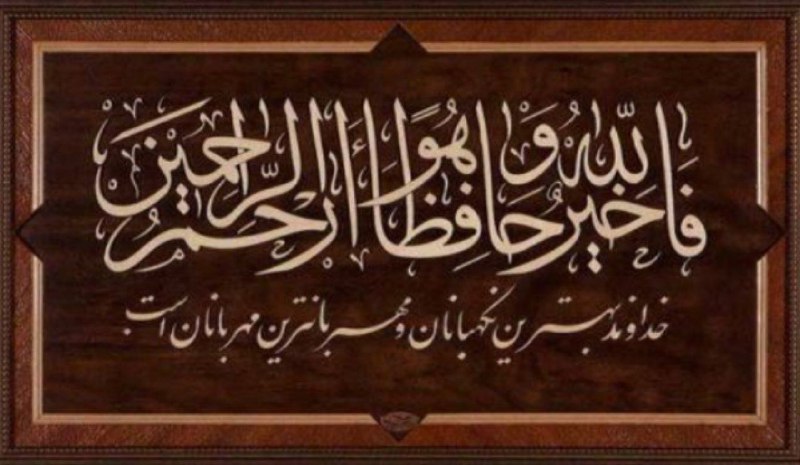 فَاللّٰهُ خَيْرٌ حَافِظًا وَهُوَ أَرْحَمُ الرَّاحِمِينَ
خداوند بهترین نگهبانان و مهربانترین مهربانان است